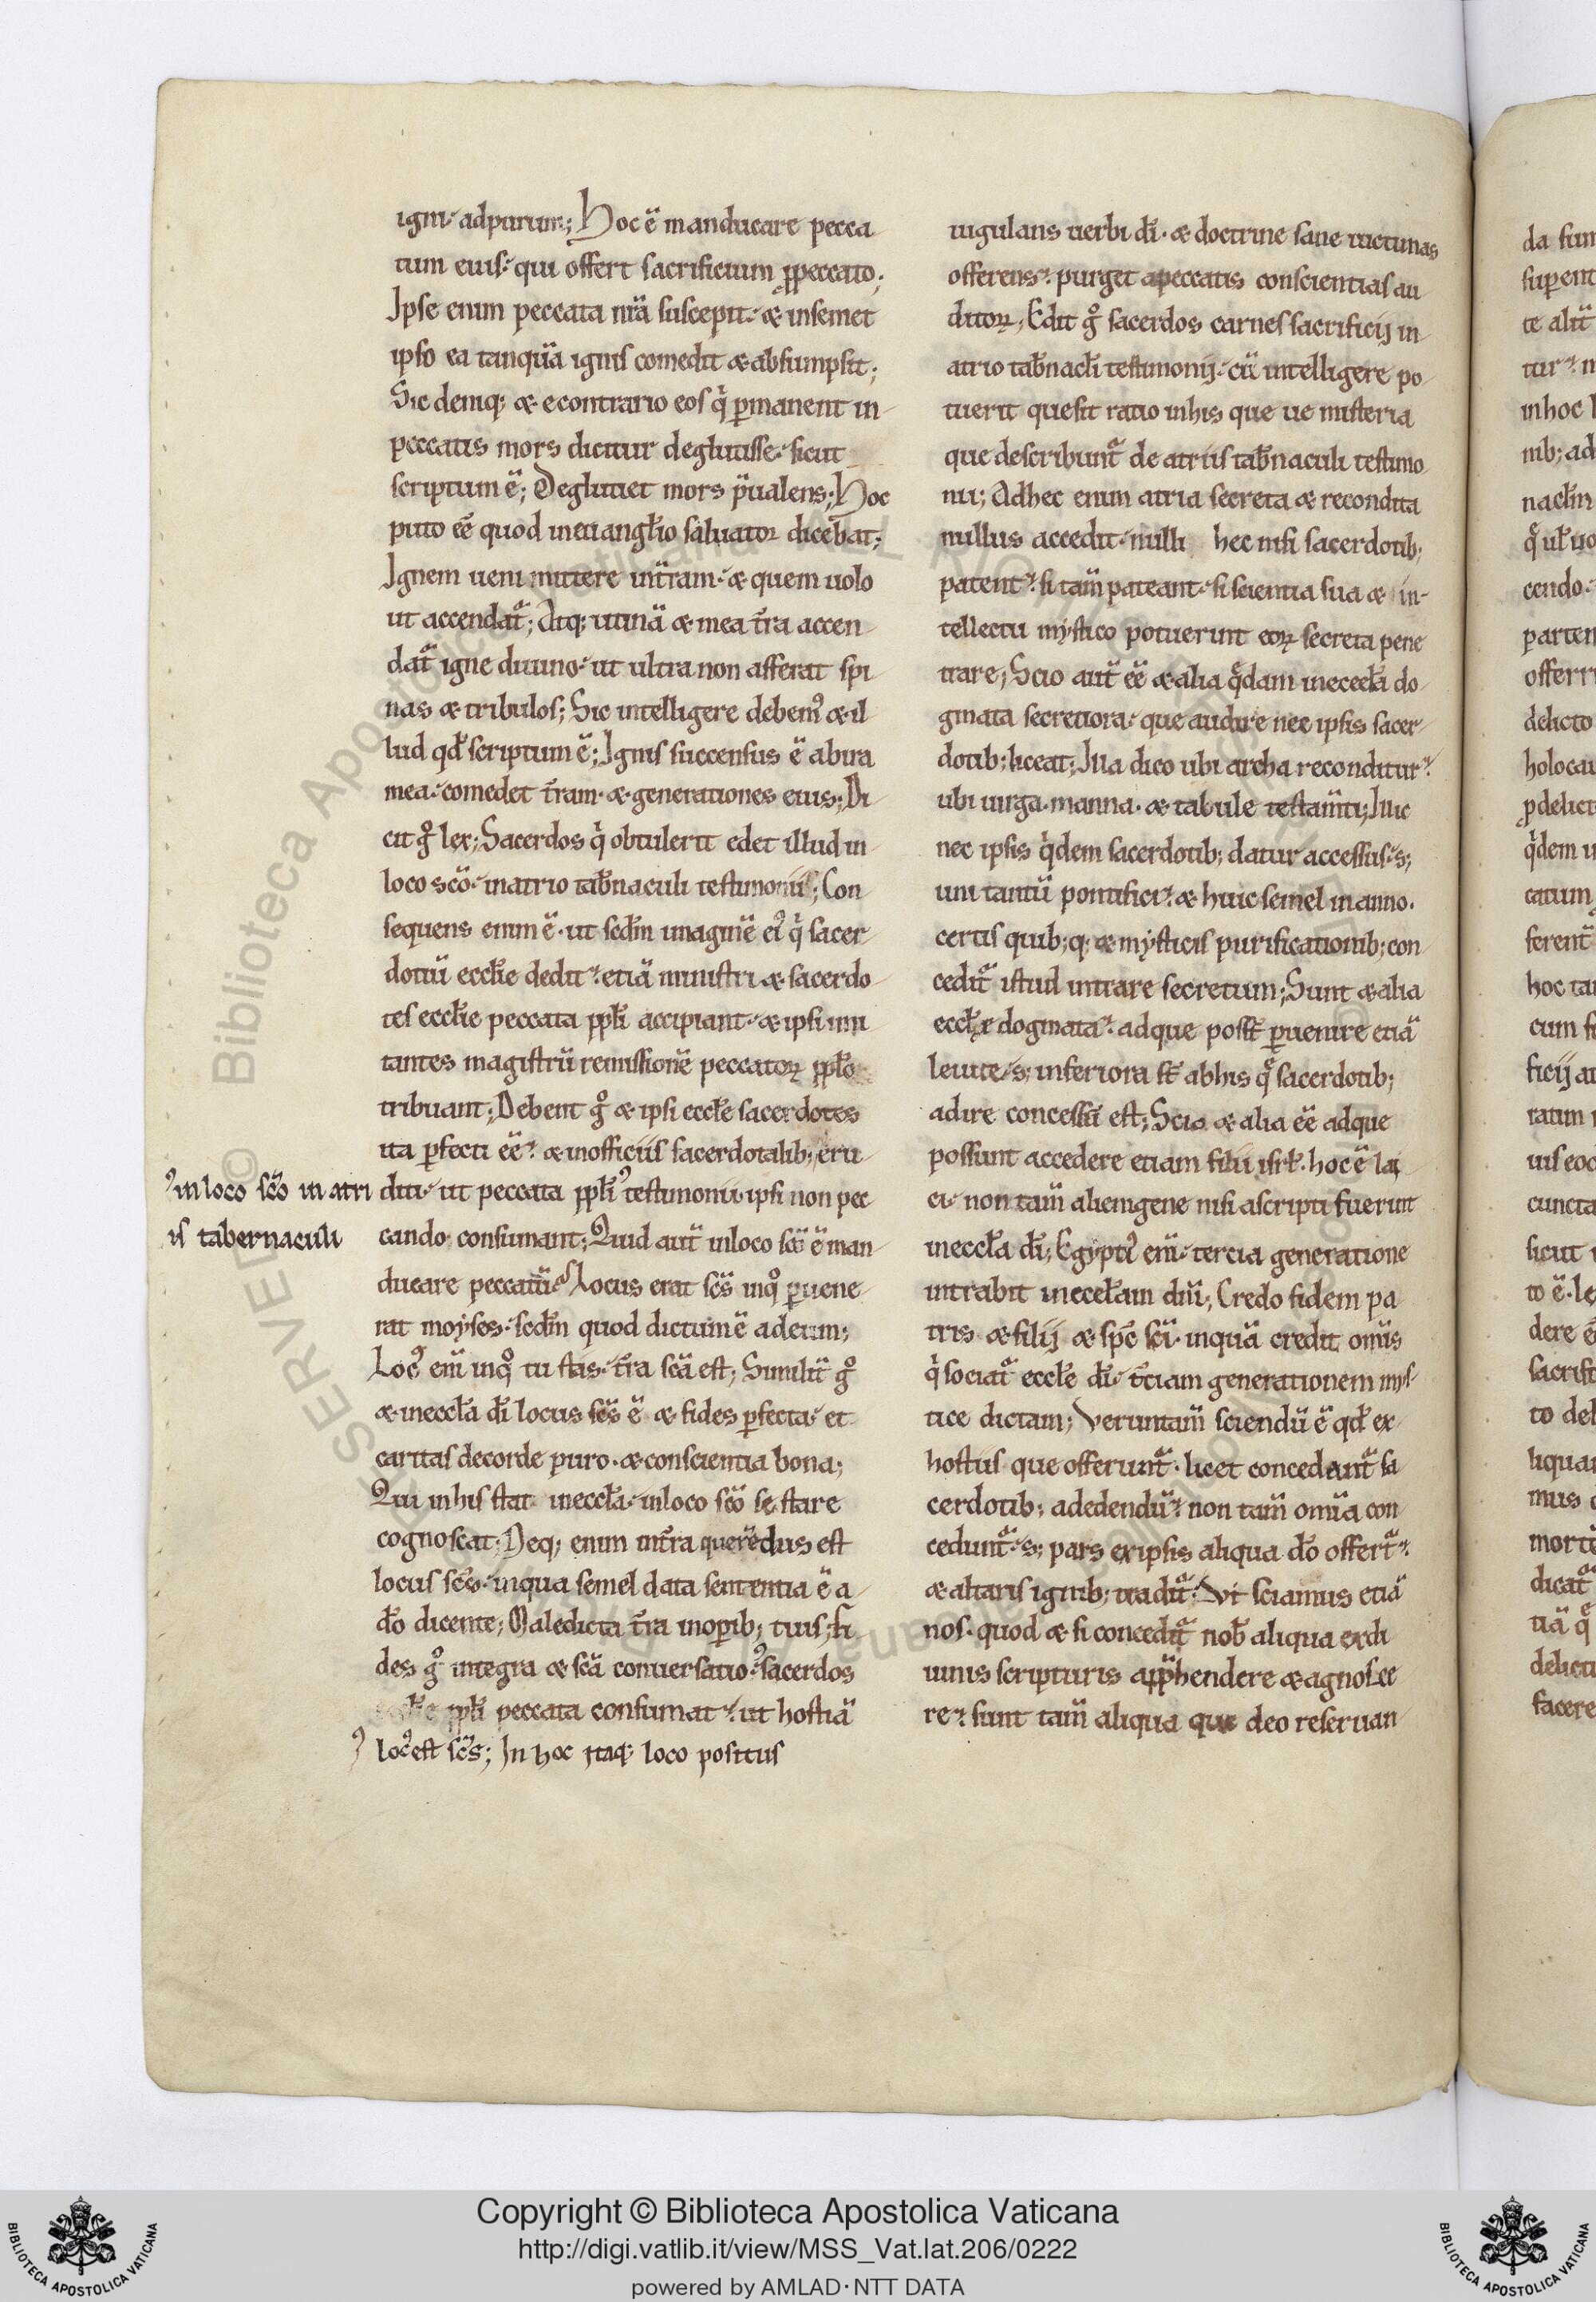 igni· ad purum; Hoc ē manducare pecca
tum euis· qui offert sacrificium p̱peccato;
Ipse enim peccata nr̄a suscepit· & insemet
ipso ea tanquā ignis comedit & absumpsit;
Sic deniq; & econtrario eos q̍ p̲manent in
peccatis mors dicitur deglutisse· sicut
scriptum ē; Deglutiet mors p̄ualens; Hoc
puto ēē quod in euangl̄io saluator dicebat;
Ignem ueni mittere int̄ram· & quem uolo
ut accendat᷑; Atq; utinā & mea t̄ra accen
dat᷑ igne diuino· ut ultra non afferat spi
nas & tribulos; Sic intelligere debemꝰ & il
lud qd̄ scriptum ē; Ignis succensus ē abira
mea· comedet t̄ram· & generationes eius; Di
cit gͦ lex; Sacerdos q̍ obtulerit edet illud in
loco scō· in atrio tab̄naculi testimonii; Con
sequens enim ē· ut scd̄m imaginē eiꝰ q̍ sacer
dotiū eccl̄ie dedit· etiā ministri & sacerdo
tes eccl̄ie peccata ppl̄i accipiant· & ipsi imi
tantes magistrū remissionē peccatoꝝ ppl̄o
tribuant; Debent gͦ & ipsi eccl̄e sacerdotes
ita p̲fecti ēē· & in officiis sacerdotalib; eru
ꝰin loco scō in atri diti· ut peccata ppl̄iꝰ testimonii· ipsi non pec
is tabernaculi cando consumant; Quid aut̄ inloco scō ē man
ducare peccatū Locus erat scs̄ inqͦ p̲uene
rat moyses· scd̄m quod dictum ē adeum;
Locꝰ eni̅ inqͦ tu stas· t̄ra scā est; Similit̄ gͦ
& in eccl̄a dī locus scs̄ ē & fides p̲fecta· et
caritas decorde puro· & conscientia bona;
Qui in his stat in eccl̄a· inloco scō se stare
cognoscat; Neq; enim int̄ra querēdus est
locus scs̄· inqua semel data sententia ē a
dō dicente; Maledicta t̄ra inop̲ib; tuis; fi
des gͦ integra & scā conuersatio·ꝰ sacerdos
ppl̄i peccata consumat· ut hostiā
ꝰ locꝰ est scs̄; In hoc itaq; loco positus
iugulans uerbi dī· & doctrine sane uictimas
offerens· purget apeccatis conscientias au
ditoꝝ; Edit gͦ sacerdos carnes sacrificij in
atrio tab̄nacl̄i testimonij· cū intelligere po
tuerit quesit ratio inhis que ue misteria
que describunt᷑ de atriis tab̄naculi testimo
nii; Adhec enim atria secreta & recondita
nullus accedit· nulli hec nisi sacerdotib;
patent· si tam̄ pateant· si scientia sua & in-
tellectu mystico potuerint eoꝝ secreta pene
trare; Scio aut̄ ēē & alia qͣdam ineccl̄a do
gmata secretiora· que audire nec ipsis sacer
dotib; liceat; Illa dico ubi archa reconditur·
ubi uirga· manna· & tabule testam̄ti; Illuc
nec ipsis q̍dem sacerdotib; datur accessus· s;
uni tantū pontifici· & huic semel inanno·
certis quib;q; & mysticis purificationib; con
cedit᷑ istud intrare secretum; Sunt & alia
eccl̄e dogmata· adque poss̄t p̲uenire etiā
leuite· s; inferiora st̄ abhis qͣ sacerdotib;
adire concessū est; Scio & alia ēē adque
possunt accedere etiam filii isrl̄· hoc ē lai
ci· non tam̄ alienigene nisi ascripti fuerint
ineccl̄a dī; Egyptiꝰ eni̅· tercia generatione
intrabit ineccl̄am dni̅; Credo fidem pa
tris & filij & spc̄ scī· inquā credit om̄is
q̍ sociat᷑ eccl̄e dī· t̄ciam generationem mys
tice dictam; Veruntam̄ sciendū ē qd̄ ex
hostiis que offerunt᷑· licet concedant᷑ sa
cerdotib; adedendū· non tam̄ omīa con
cedunt᷑· s; pars exipsis aliqua dō offert᷑·
& altaris ignib; tradit᷑; Vt sciamus etiā
nos· quod & si concedit᷑ nob̄ aliqua exdi
uinis scripturis app̄hendere & agnosce
re· sunt tam̄ aliqua que deo reseruan
Copyright © Biblioteca Apostolica Vaticana
http://digi.vatlib.it/view/MSS_Vat.lat.206/0222
powered by AMLAD·NTT DATA
BIBLIOTECA APOSTOLICA VATICANA
BIBLIOTECA APOSTOLICA VATICANA